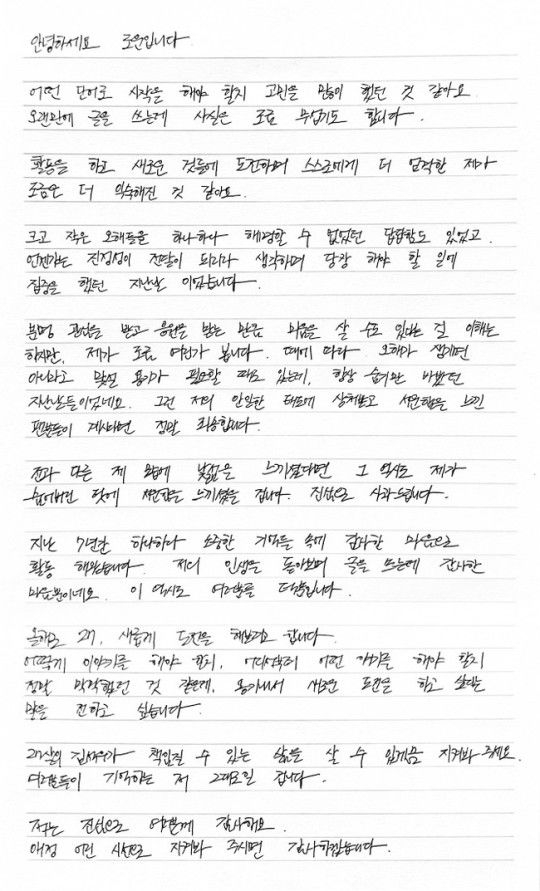 안녕하세요 로운입니다.
어떤 단어로 시작을 해야 할지 고민을 많이 했던 것 같아요.
오랜만에 글을 쓰는데 사실은 조금 무섭기도 합니다.
활동을 하고 새로운 것들에 도전하며 스스로에게 더 엄격한 제가
조금은 더 익숙해진 것 같아요.
크고 작은 오해들을 하나하나 해명할 수 없었던 답답함도 있었고
언젠가는 진정성이 전달이 되리라 생각하며 당장 해야 할 일에
집중을 했던 지난날 이었습니다.
분명 관심을 받고 응원을 받는 만큼 미움을 살 수도 있다는 걸 이해는
하지만, 제가 조금 여린가 봅니다. 때에 따라 오해가 쌓이면
아니라고 맞설 용기가 필요할 때도 있는데, 항상 숨기만 바빴던
지난날들이었네요. 그런 저의 안일한 태도에 상처받고 서운함을 느낀
팬분들이 계시다면 정말 죄송합니다.
전과 다른 제 모습에 낯섦을 느끼셨다면 그 역시도 제가
숨어버린 탓에 서운함을 느끼셨을 겁니다. 진심으로 사과드립니다.
지난 7년간 하나하나 소중한 기억들 속에 감사한 마음으로
활동 해왔습니다. 저의 인생을 돌아보며 글을 쓰는데 감사한
마음뿐이네요. 이 역시도 여러분들 덕분입니다.
올해로 27, 새롭게 도전을 해보려고 합니다.
어떻게 이야기를 해야 할지, 어디서부터 어떤 얘기를 해야 할지
정말 막막했던 것 같은데, 용기내서 새로운 도전을 하고 싶다는
말을 전하고 싶습니다.
27살의 김석우가 책임질 수 있는 삶을 살 수 있게끔 지켜봐 주세요.
여러분들이 기억하는 저 그대로일 겁니다.
저는 진심으로 여러분께 감사해요.
애정 어린 시선으로 지켜봐 주시면 감사하겠습니다.